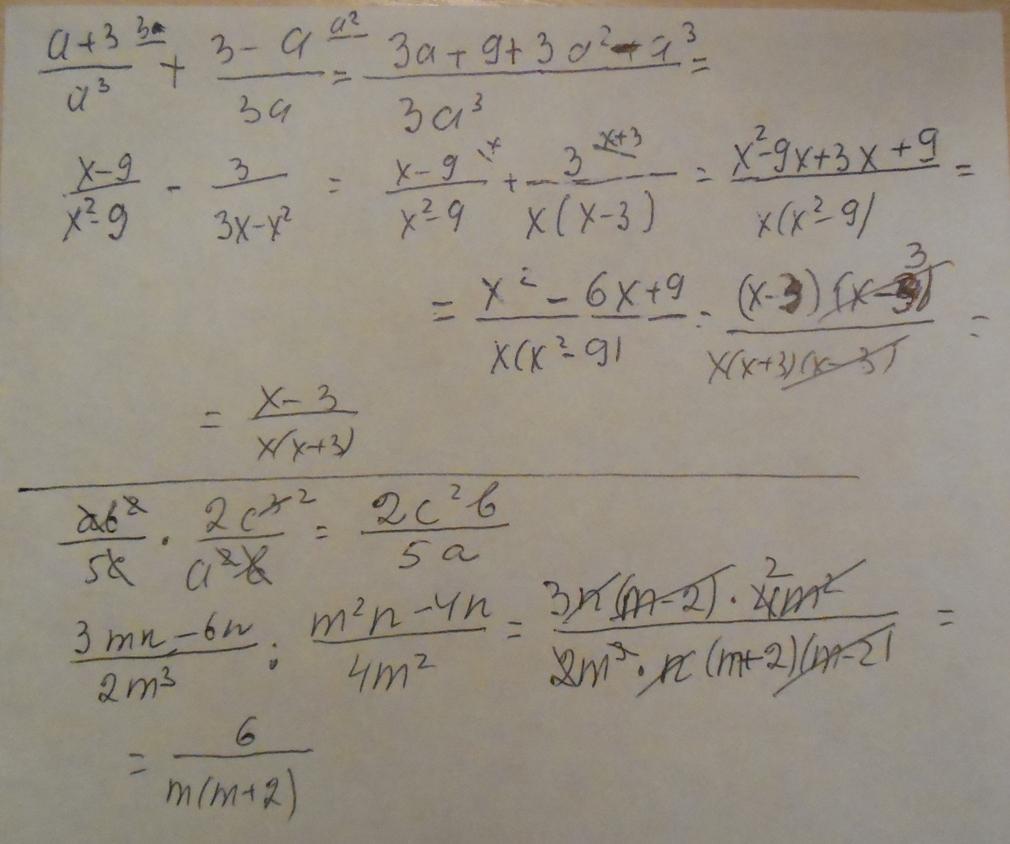 (a+3)/a³ ^3 + (3-a)/3a ^a² = (3a+9+3a²-a³)/3a³ =
(x-9)/(x²-9) - 3/(3x-x²) = (x-9)/(x²-9) ^x + 3/(x(x-3)) ^x+3 = (x²-9x+3x+9)/(x(x²-9)) =
= (x²-6x+9)/(x(x²-9)) = (x-3)(x-3)/(x(x+3)(x-3)) =
= (x-3)/(x(x+3))
ab²/5c · 2c³/a²b = 2c²b/5a
(3mn-6n)/2m³ : (m²n-4n)/4m² = 3n(m-2)·4m²/(2m³·n(m+2)(m-2)) =
= 6/(m(m+2))